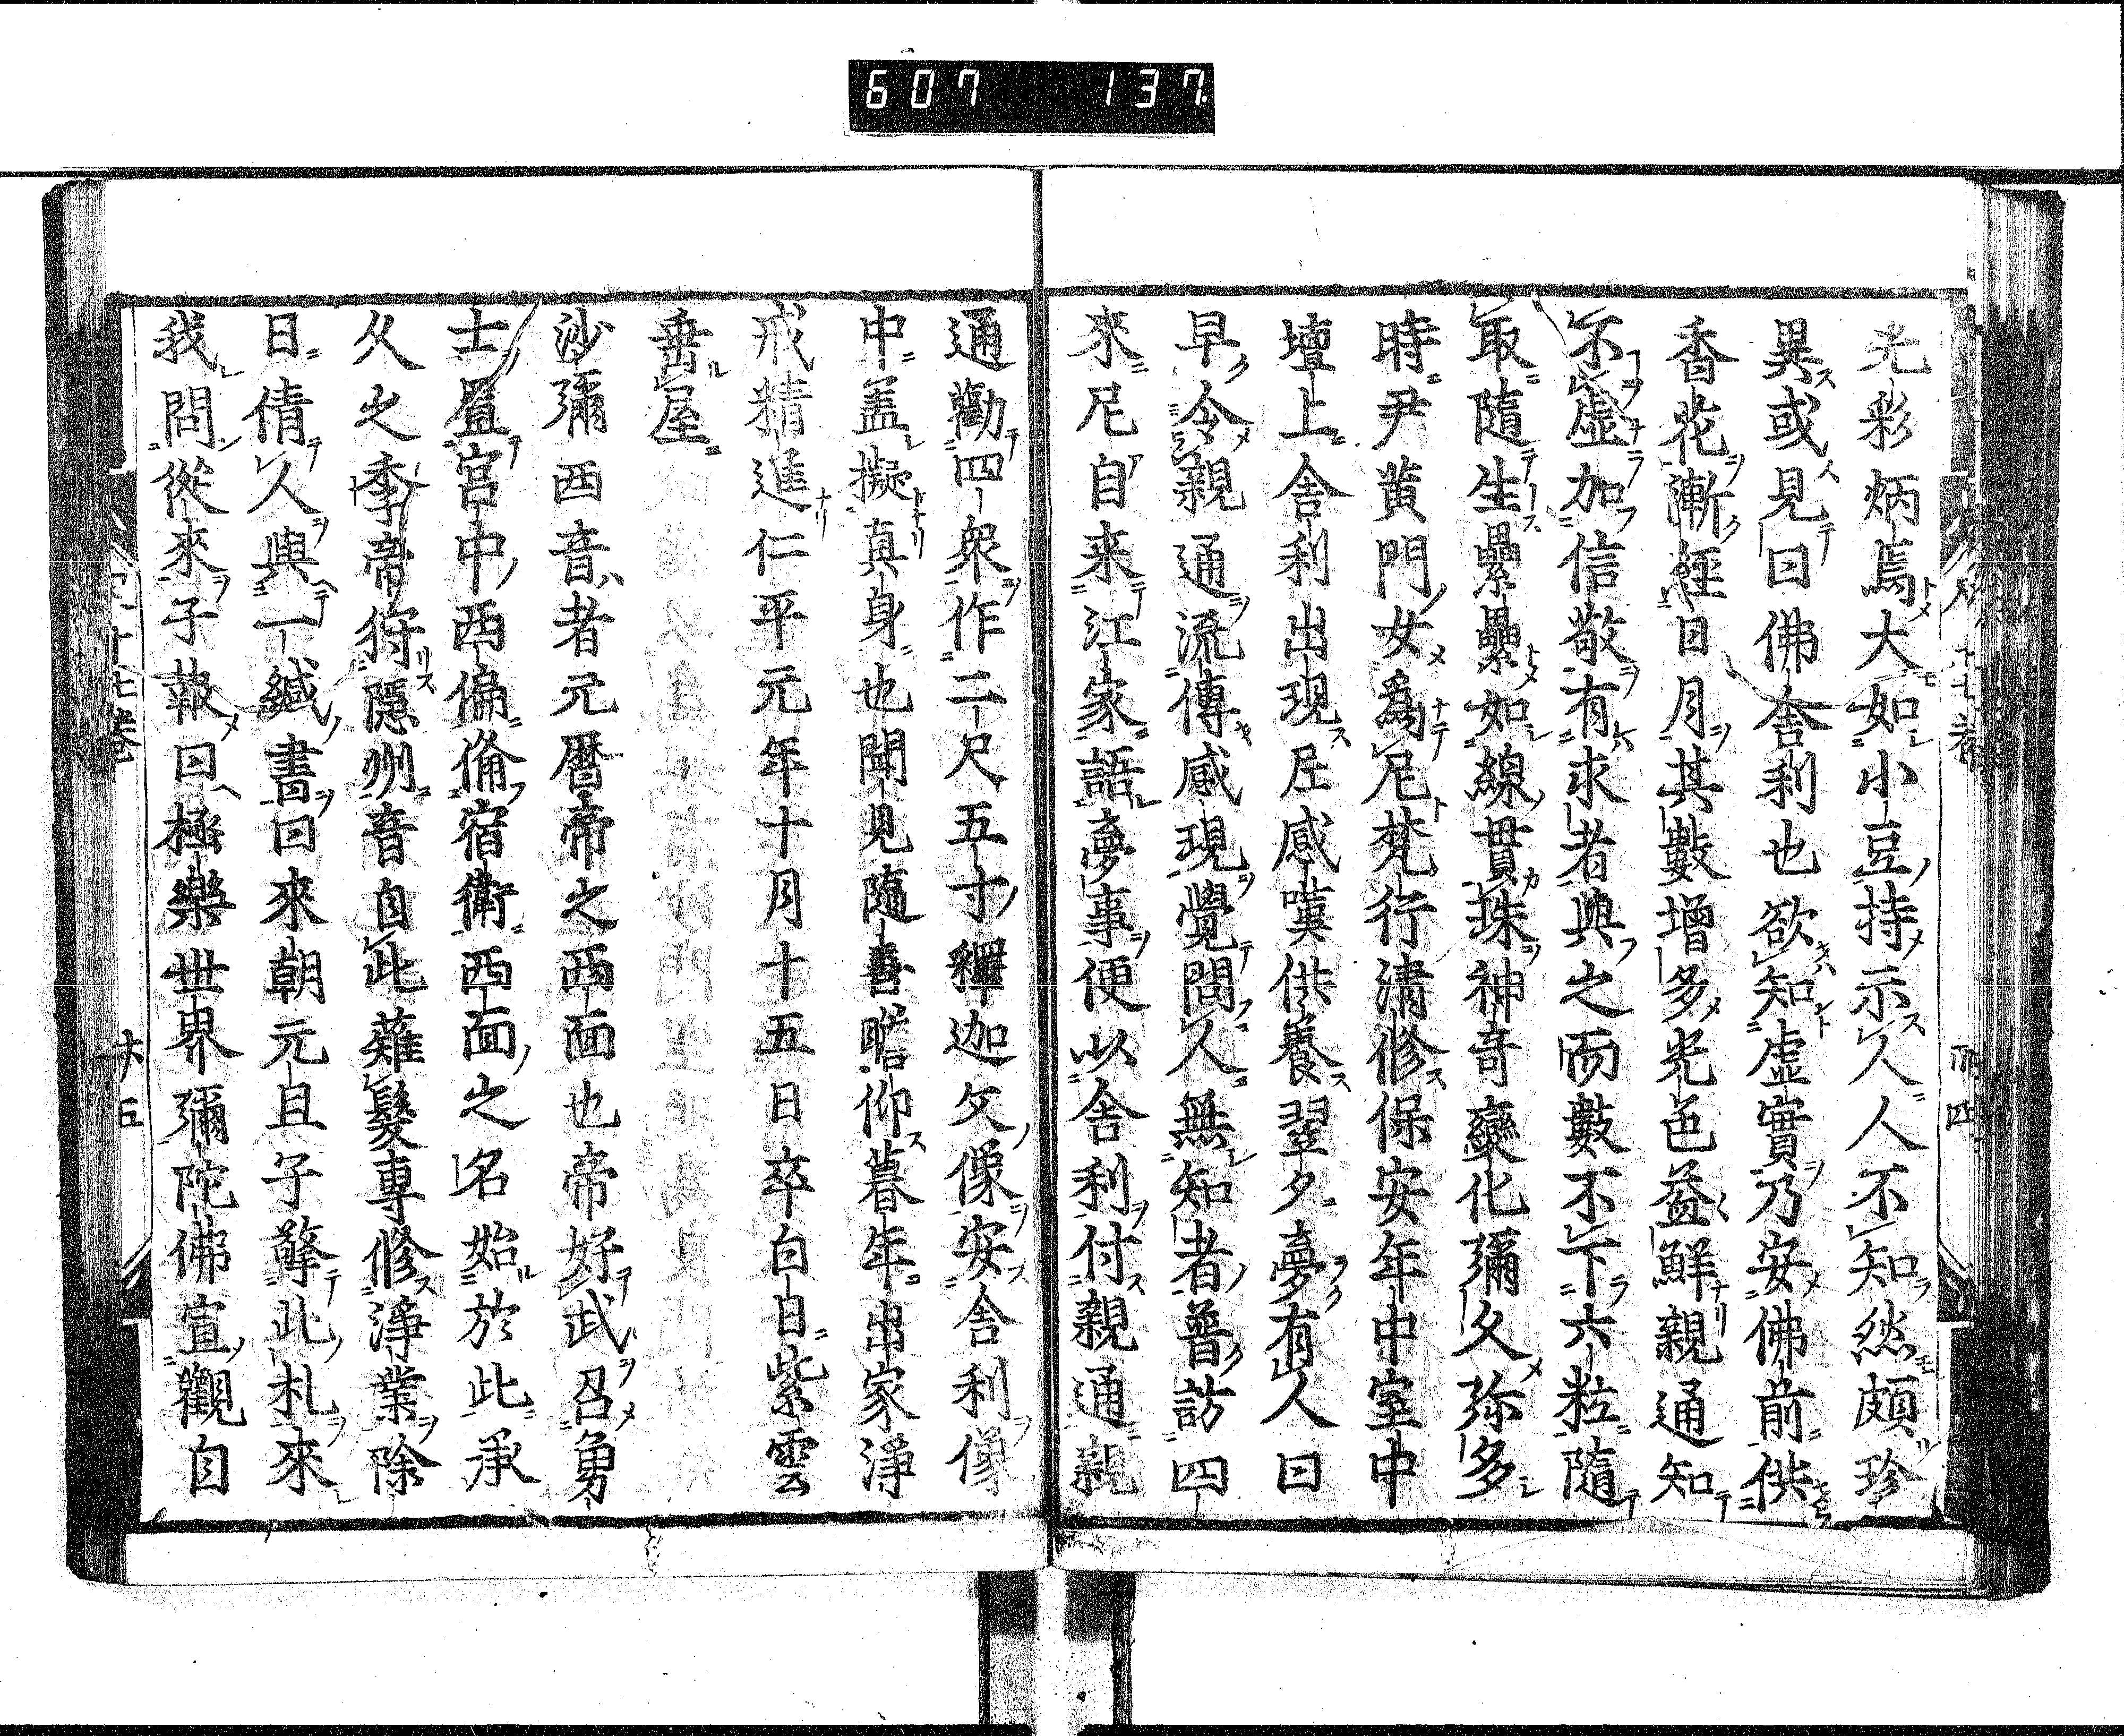 607 137
光彩炳焉大如小豆持示人人不知然頗珍
異或見曰佛舎利也欲知虚實乃安佛前供
香花漸經日月其數增多光色益鮮親通知
不虚加信敬有求者與之而數不下六粒隨
取隨生纍纍如線貫珠神奇變化彌久弥多
時尹黄門女爲尼梵行清修保安年中室中
壇上舎利出現尼感嘆供養翌夕夢有人曰
早令親通流傳感現覺問人無知者普訪四
來尼自来江家語夢事便以舎利付親通親
通勸四衆作二尺五寸釋迦文像安舎利像
中盖擬真身也聞見隨喜瞻仰暮年出家淨
戒精進仁平元年十月十五日卒白日紫雲
垂屋
沙彌西音者元暦帝之西面也帝好武召勇
士置宮中西偏俻宿衛西面之名始於此承
久之季帝狩隱州音自此薙髮專修淨業除
日倩人與一緘書曰來朝元旦子擎此札來
我問從來子報曰極樂世界彌陀佛宣觀自